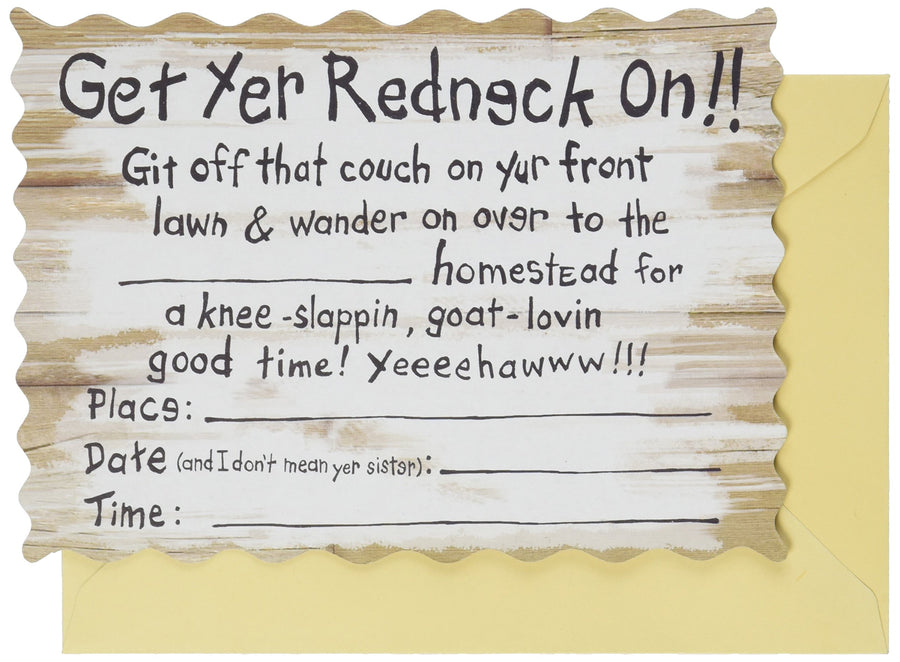 Get Yer Redneck On!!
Git off that couch on yur front
lawn & wander on over to the
____________________ homestead for
a knee-slappin, goat-lovin
good time! Yeeeehawww!!!
Place: ____________________
Date (and I don't mean yer sister): ____________________
Time: ____________________